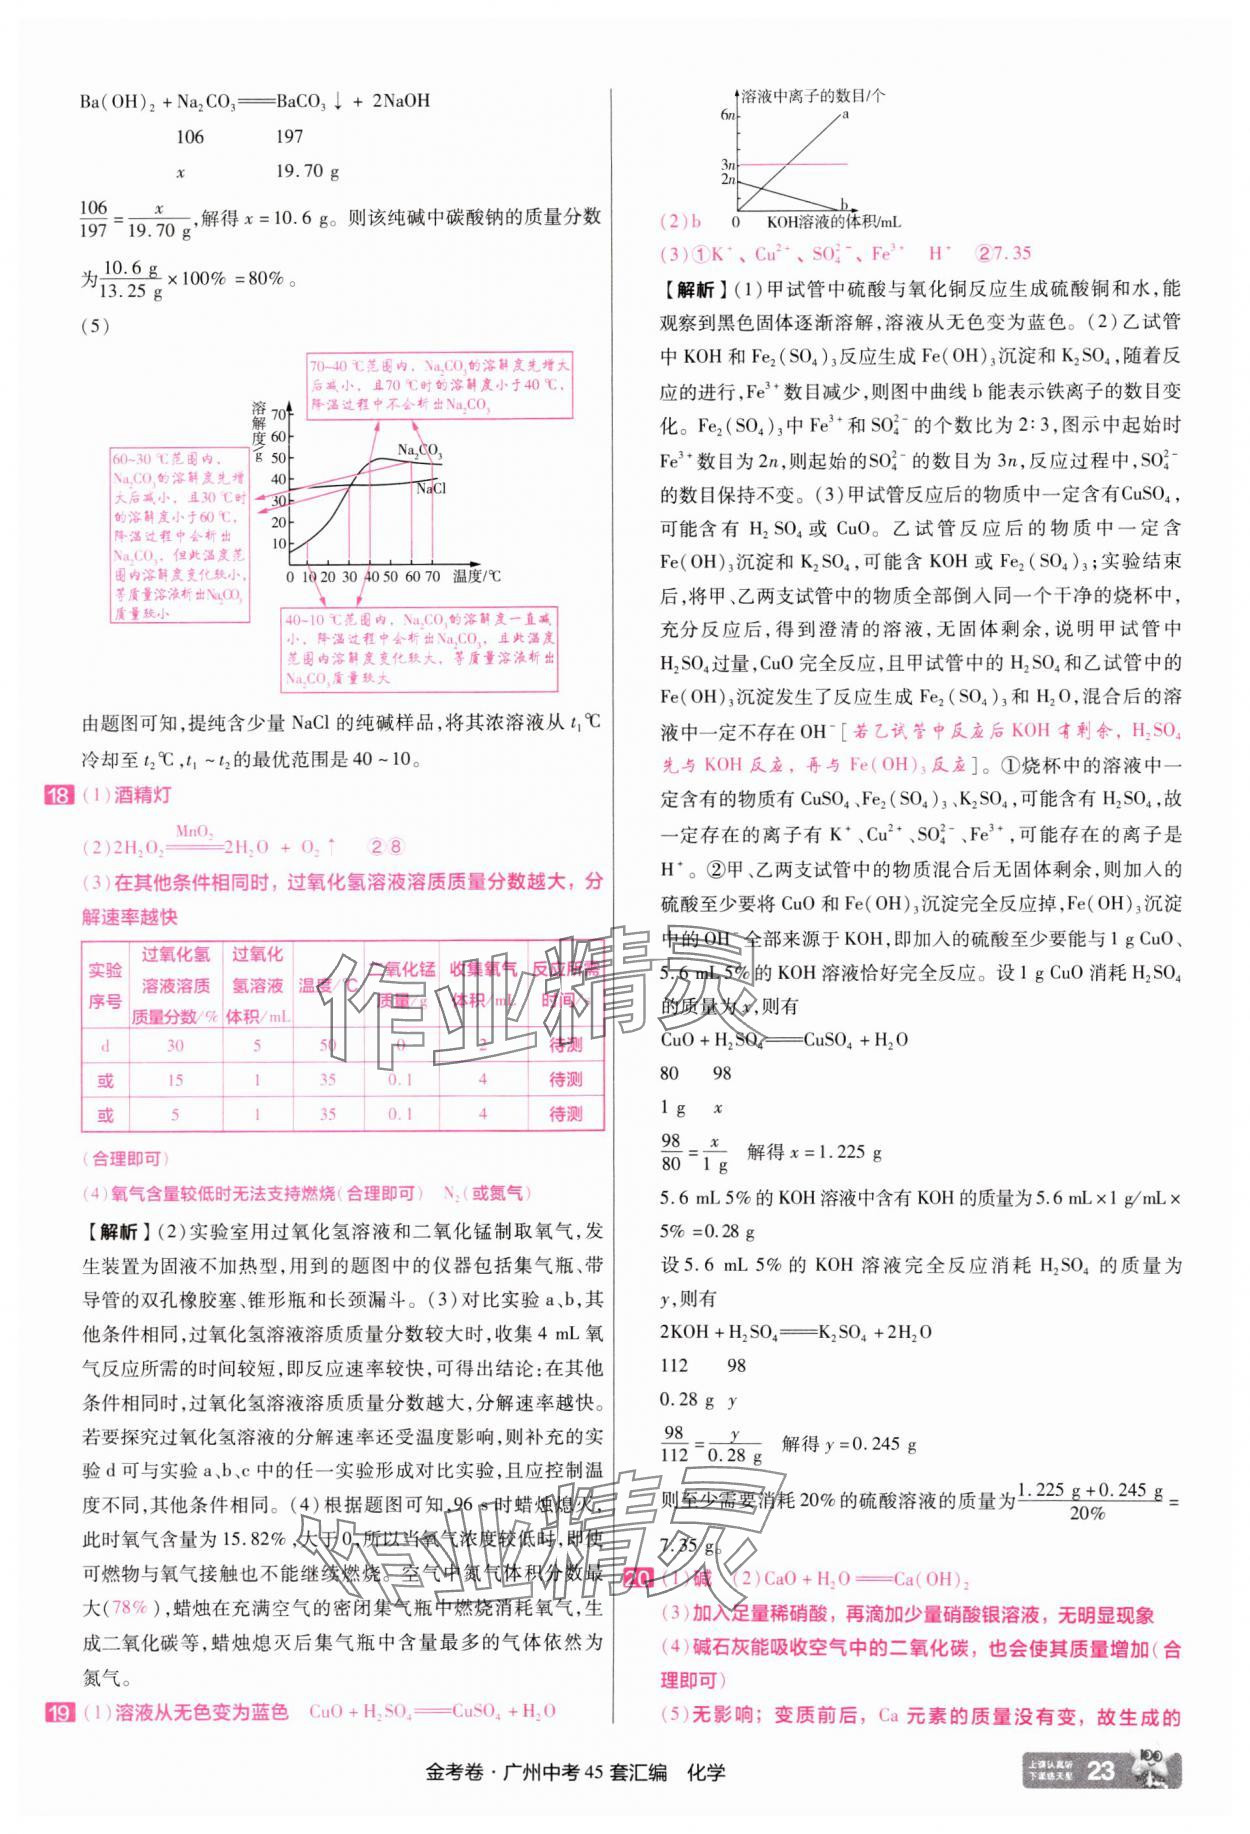 Ba(OH)₂ + Na₂CO₃══BaCO₃↓ + 2NaOH
106 197
x 19.70 g
106/197 = x/19.70 g,解得 x = 10.6 g。则该纯碱中碳酸钠的质量分数
为10.6 g/13.25 g × 100% = 80%。
(5)
70~40 ℃范围内，Na₂CO₃的溶解度先增大
后减小，且70 ℃时的溶解度小于40 ℃，
降温过程中不会析出Na₂CO₃
溶解度/g
70
60
50
40
30
20
10
Na₂CO₃
NaCl
0 10 20 30 40 50 60 70 温度/℃
60~30 ℃范围内，
Na₂CO₃的溶解度先增
大后减小，且30 ℃时
的溶解度小于60 ℃，
降温过程中会析出
Na₂CO₃，但此温度范
围内溶解度变化较小，
等质量溶液析出Na₂CO₃
质量较小
40~10 ℃范围内，Na₂CO₃的溶解度一直减
小，降温过程中会析出Na₂CO₃，且此温度
范围内溶解度变化较大，等质量溶液析出
Na₂CO₃质量较大
由题图可知,提纯含少量 NaCl 的纯碱样品,将其浓溶液从 t₁℃
冷却至 t₂℃,t₁ ~ t₂的最优范围是 40 ~ 10。
18 (1)酒精灯
(2)2H₂O₂ ══MnO₂══ 2H₂O + O₂↑ ②⑧
(3)在其他条件相同时，过氧化氢溶液溶质质量分数越大，分
解速率越快
实验序号 过氧化氢溶液溶质质量分数/% 过氧化氢溶液体积/mL 温度/℃ 二氧化锰质量/g 收集氧气体积/mL 反应所需时间/s
d 30 5 50 0 2 待测
或 15 1 35 0.1 4 待测
或 5 1 35 0.1 4 待测
(合理即可)
(4)氧气含量较低时无法支持燃烧(合理即可) N₂(或氮气)
【解析】(2)实验室用过氧化氢溶液和二氧化锰制取氧气,发
生装置为固液不加热型,用到的题图中的仪器包括集气瓶、带
导管的双孔橡胶塞、锥形瓶和长颈漏斗。(3)对比实验 a、b,其
他条件相同,过氧化氢溶液溶质质量分数较大时,收集 4 mL 氧
气反应所需的时间较短,即反应速率较快,可得出结论:在其他
条件相同时,过氧化氢溶液溶质质量分数越大,分解速率越快。
若要探究过氧化氢溶液的分解速率还受温度影响,则补充的实
验 d 可与实验 a、b、c 中的任一实验形成对比实验,且应控制温
度不同,其他条件相同。(4)根据题图可知,96 s 时蜡烛熄灭,
此时氧气含量为 15.82%,大于 0,所以当氧气浓度较低时,即使
可燃物与氧气接触也不能继续燃烧。空气中氮气体积分数最
大(78%),蜡烛在充满空气的密闭集气瓶中燃烧消耗氧气,生
成二氧化碳等,蜡烛熄灭后集气瓶中含量最多的气体依然为
氮气。
19 (1)溶液从无色变为蓝色 CuO + H₂SO₄══CuSO₄ + H₂O
溶液中离子的数目/个
6n
3n
2n
a
b
0 KOH溶液的体积/mL
(2)b
(3)①K⁺、Cu²⁺、SO₄²⁻、Fe³⁺ H⁺ ②7.35
【解析】(1)甲试管中硫酸与氧化铜反应生成硫酸铜和水,能
观察到黑色固体逐渐溶解,溶液从无色变为蓝色。(2)乙试管
中 KOH 和 Fe₂(SO₄)₃反应生成 Fe(OH)₃沉淀和 K₂SO₄,随着反
应的进行,Fe³⁺数目减少,则图中曲线 b 能表示铁离子的数目变
化。Fe₂(SO₄)₃中 Fe³⁺和 SO₄²⁻的个数比为 2∶3,图示中起始时
Fe³⁺数目为 2n,则起始的SO₄²⁻的数目为 3n,反应过程中,SO₄²⁻
的数目保持不变。(3)甲试管反应后的物质中一定含有CuSO₄,
可能含有 H₂SO₄ 或 CuO。乙试管反应后的物质中一定含
Fe(OH)₃沉淀和 K₂SO₄,可能含 KOH 或 Fe₂(SO₄)₃;实验结束
后,将甲、乙两支试管中的物质全部倒入同一个干净的烧杯中,
充分反应后,得到澄清的溶液,无固体剩余,说明甲试管中
H₂SO₄过量,CuO 完全反应,且甲试管中的 H₂SO₄和乙试管中的
Fe(OH)₃沉淀发生了反应生成 Fe₂(SO₄)₃和 H₂O,混合后的溶
液中一定不存在 OH⁻[若乙试管中反应后 KOH 有剩余，H₂SO₄
先与 KOH 反应，再与 Fe(OH)₃反应]。①烧杯中的溶液中一
定含有的物质有 CuSO₄、Fe₂(SO₄)₃、K₂SO₄,可能含有 H₂SO₄,故
一定存在的离子有 K⁺、Cu²⁺、SO₄²⁻、Fe³⁺,可能存在的离子是
H⁺。②甲、乙两支试管中的物质混合后无固体剩余,则加入的
硫酸至少要将 CuO 和 Fe(OH)₃沉淀完全反应掉,Fe(OH)₃沉淀
中的 OH⁻全部来源于 KOH,即加入的硫酸至少要能与 1 g CuO、
5.6 mL 5%的 KOH 溶液恰好完全反应。设 1 g CuO 消耗 H₂SO₄
的质量为 x,则有
CuO + H₂SO₄══CuSO₄ + H₂O
80 98
1 g x
98/80 = x/1 g 解得 x = 1.225 g
5.6 mL 5%的 KOH 溶液中含有 KOH 的质量为 5.6 mL × 1 g/mL ×
5% = 0.28 g
设 5.6 mL 5% 的 KOH 溶液完全反应消耗 H₂SO₄ 的质量为
y,则有
2KOH + H₂SO₄══K₂SO₄ + 2H₂O
112 98
0.28 g y
98/112 = y/0.28 g 解得 y = 0.245 g
则至少需要消耗 20%的硫酸溶液的质量为(1.225 g + 0.245 g)/20% =
7.35 g。
20 (1)碱 (2)CaO + H₂O══Ca(OH)₂
(3)加入足量稀硝酸，再滴加少量硝酸银溶液，无明显现象
(4)碱石灰能吸收空气中的二氧化碳，也会使其质量增加(合
理即可)
(5)无影响；变质前后，Ca 元素的质量没有变，故生成的
作业精灵
作业精灵
金考卷·广州中考 45 套汇编 化学
上课认真听
下课练天星
23
100